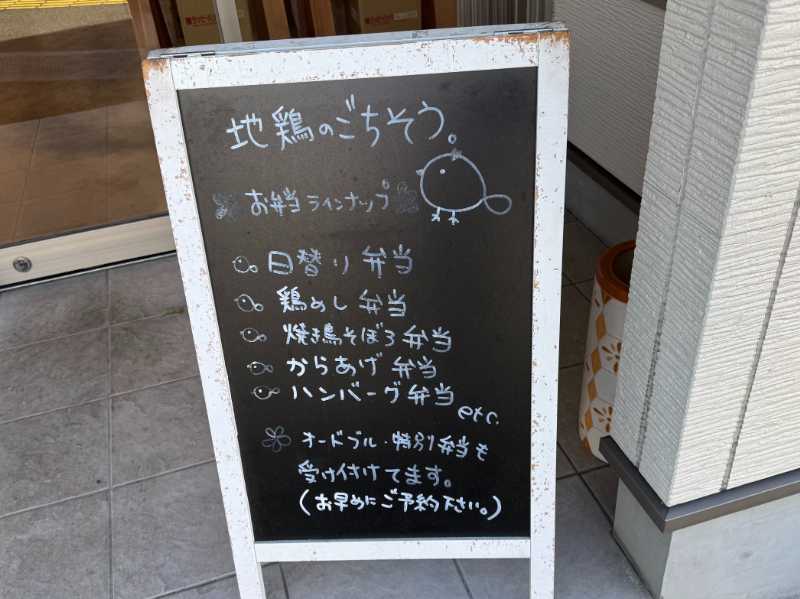 地鶏のごちそう。
お弁当ラインナップ
日替り弁当
鶏めし弁当
焼き鳥そぼろ弁当
からあげ弁当
ハンバーグ弁当
etc.
オードブル・特別弁当も
受け付けてます。
(お早めにご予約下さい。)